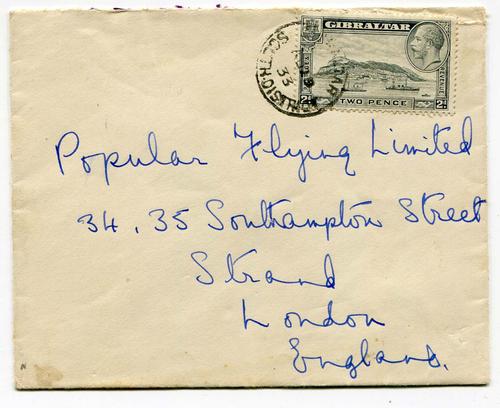 GIBRALTAR
TWO PENCE
2d. 2d.
SOUTH
33
Popular Flying Limited
34, 35 Southampton Street
Strand
London
England.